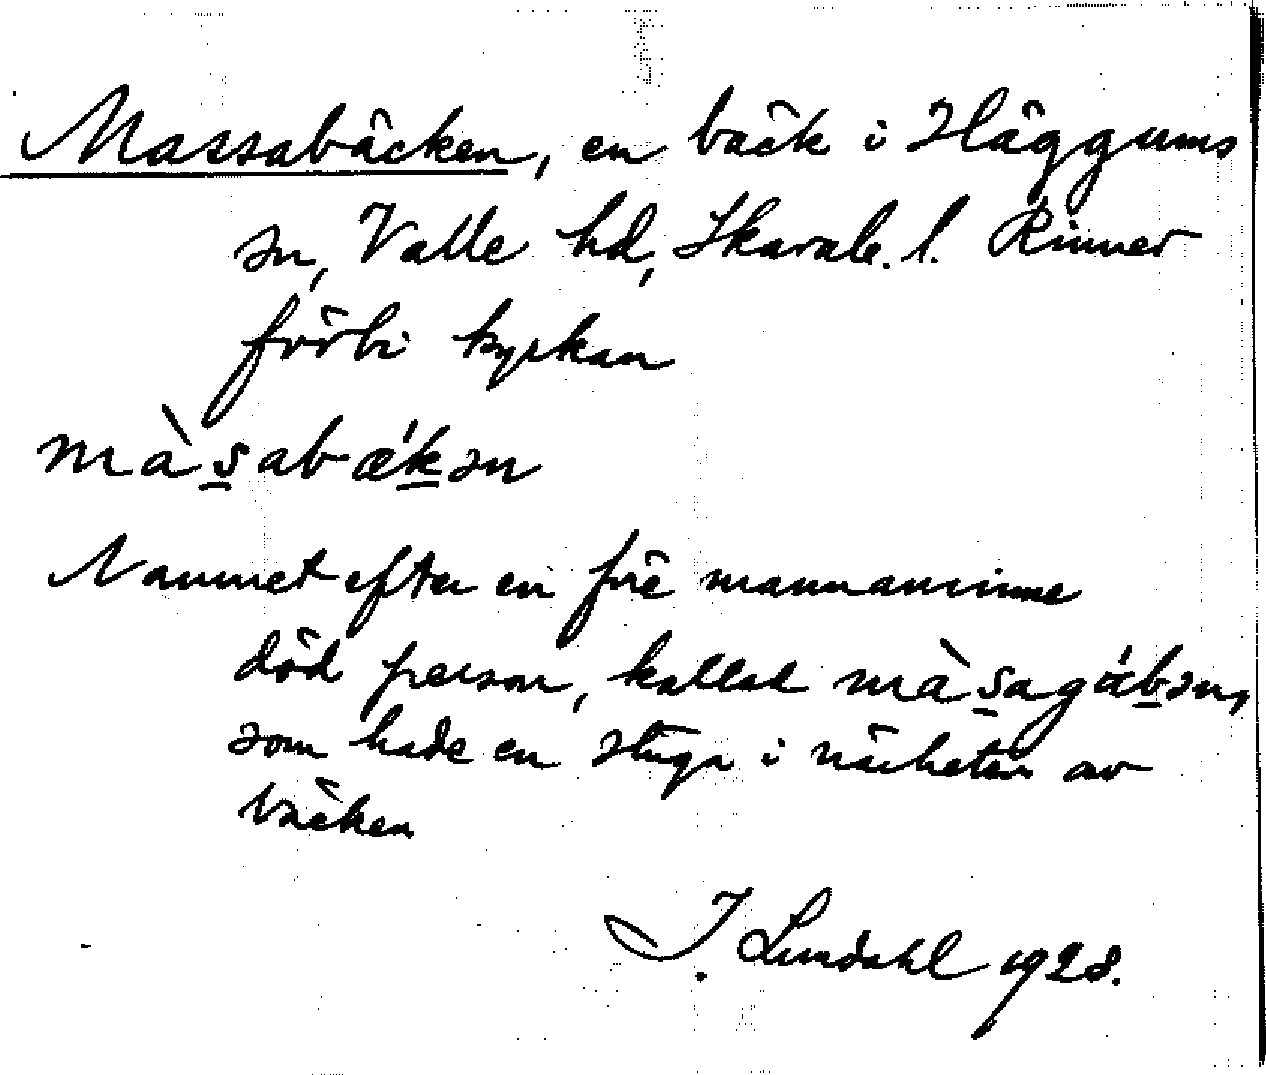 Massabäcken, en bäck i Häggums
sn, Valle hd, Skarab. l. Rinner
förbi kyrkan
màsabǽkən
Namnet efter en före mannaminne
död person, kallad màsagúbən,
som hade en stuga i närheten av
bäcken
J. Lindahl 1928.